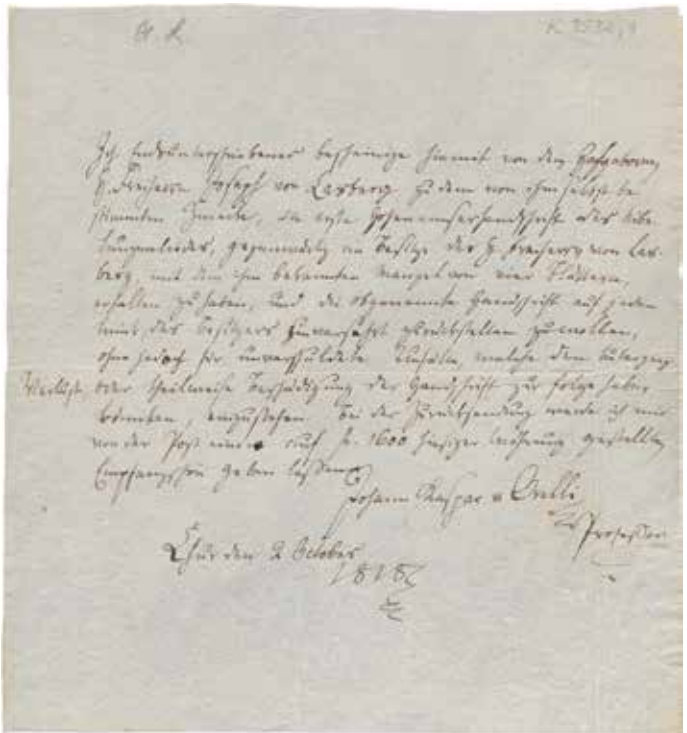 K 3532,1
Ich Endsunterschriebener bescheinige hiermit von dem
H. Freiherrn Joseph von Lasberg zu dem von ihm selbst be
stimmten Zwecke, die erste Hohenemserhandschrift des Nibe
lungenliedes, gegenwärtig im Besitze des H. Freiherrn von Las-
berg, mit dem ihm bekannten Mangel von vier Blättern,
erhalten zu haben, und die obgenannte Handschrift auf jeden
des Besitzers zurückstellen zu wollen,
ohne jedoch für unverschuldete Unfälle, welche den
Verlust, oder theilweise Beschädigung der Handschrift zur Folge haben
könnten, einzustehen. Bei der Zurücksendung werde ich mir
von der Post einen auf fr. 1600 hiesiger Währung gestellten
Empfangschein geben lassen.
Johann Kaspar v Orelli
Professor
Chur den 2 October
1818